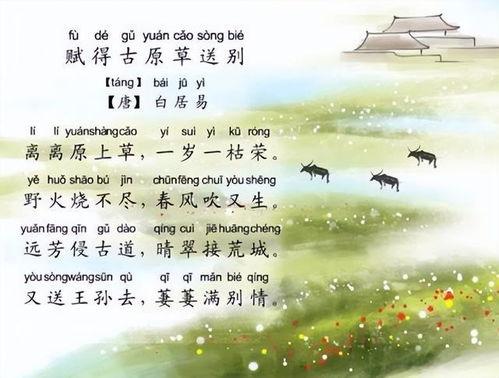 fù dé gǔ yuán cǎo sòng bié
赋得古原草送别
【táng】 bái jū yì
【唐】 白居易
lí lí yuánshàngcǎo yí suì yì kū róng
离离原上草，一岁一枯荣。
yě huǒ shāo bú jìn chūnfēng chuī yòu shēng
野火烧不尽，春风吹又生。
yuǎn fāng qīn gǔ dào qíng cuì jiē huāngchéng
远芳侵古道，晴翠接荒城。
yòu sòngwángsūn qù qī qī mǎn bié qíng
又送王孙去，萋萋满别情。